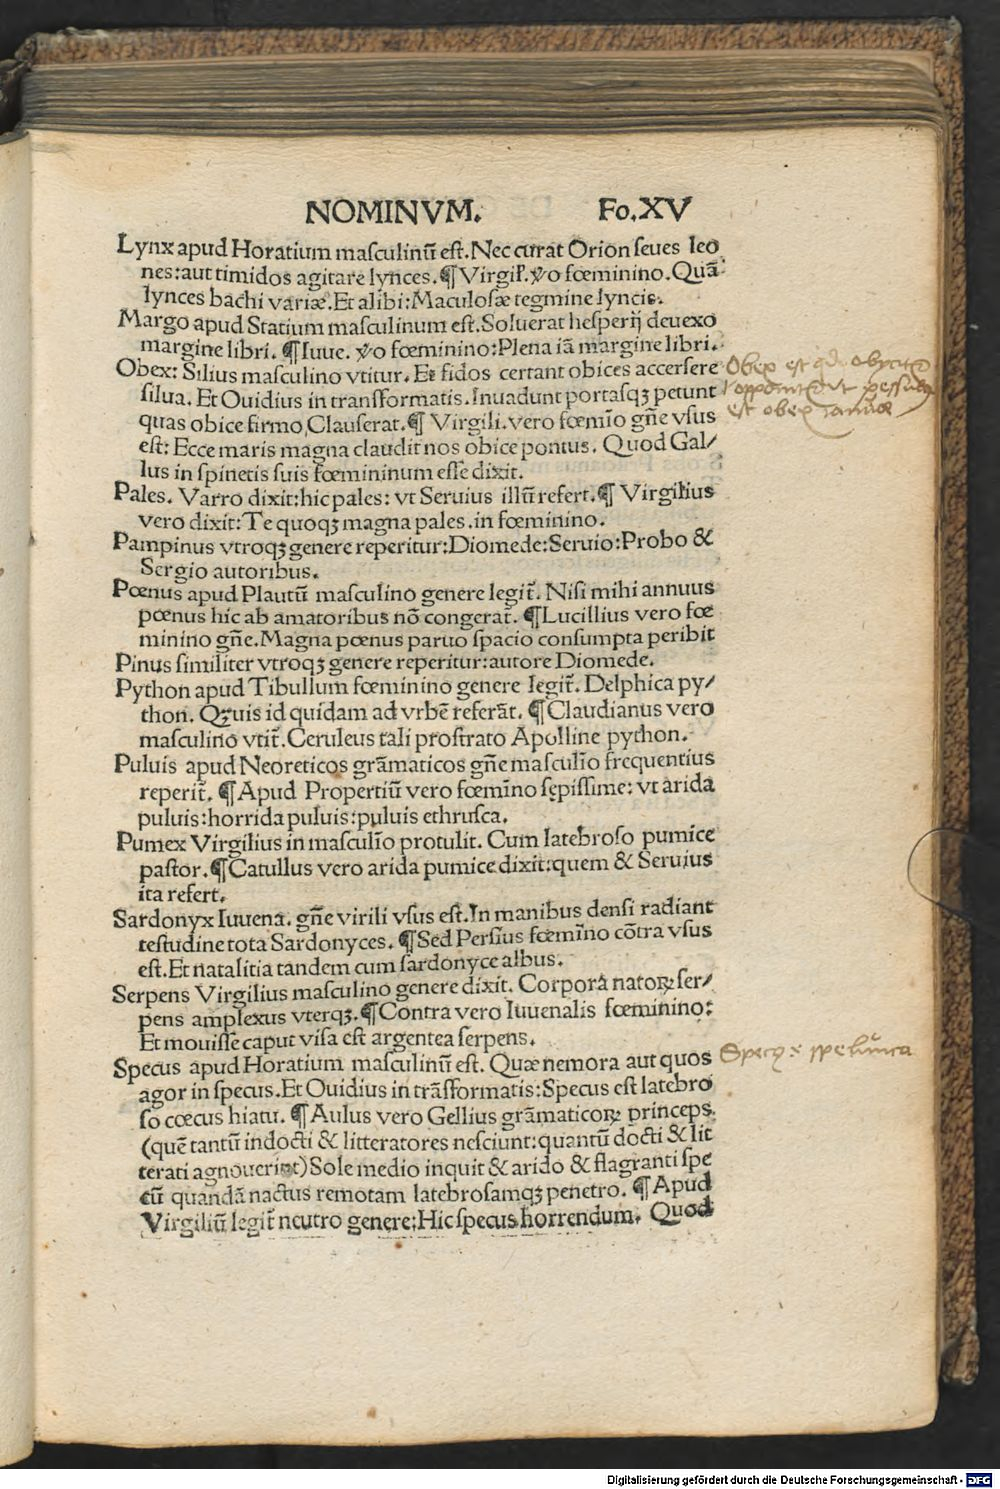 NOMINVM. Fo.XV
Lynx apud Horatium masculinū est. Nec curat Orion seues leo
nes: aut timidos agitare lynces. ¶ Virgil. ṽo fœminino. Quā
lynces bachi variæ. Et alibi: Maculosæ tegmine lyncis.
Margo apud Statium masculinum est. Soluerat hesperij deuexo
margine libri. ¶ Iuue. ṽo fœminino: Plena iā margine libri.
Obex: Silius masculino vtitur. Et fidos certant obices accersere
silua. Et Ouidius in transformatis. Inuadunt portasqʒ petunt
quas obice firmo, Clauserat. ¶ Virgili. vero fœmīo gñe vsus
est: Ecce maris magna claudit nos obice pontus. Quod Gal/
lus in spinetis suis fœmininum esse dixit.
Pales. Varro dixit: hic pales: vt Seruius illū refert. ¶ Virgilius
vero dixit: Te quoqʒ magna pales. in fœminino.
Pampinus vtroqʒ genere reperitur: Diomede: Seruio: Probo &
Sergio autoribus.
Pœnus apud Plautū masculino genere legit̃. Nisi mihi annuus
pœnus hic ab amatoribus nō congerat̃. ¶ Lucillius vero fœ
minino gñe. Magna pœnus paruo spacio consumpta peribit
Pinus similiter vtroqʒ genere reperitur: autore Diomede.
Python apud Tibullum fœminino genere legit̃. Delphica py/
thon. Qʒuis id quidam ad vrbē referāt. ¶ Claudianus vero
masculino vtit̃. Ceruleus tali prostrato Apolline python.
Puluis apud Neoreticos grāmaticos gñe masculīo frequentius
reperit̃. ¶ Apud Propertiū vero fœmīno sępissime: vt arida
puluis: horrida puluis: puluis ethrusca.
Pumex Virgilius in masculīo protulit. Cum latebroso pumice
pastor. ¶ Catullus vero arida pumice dixit: quem & Seruius
ita refert.
Sardonyx Iuuena. gñe virili vsus est. In manibus densi radiant
testudine tota Sardonyces. ¶ Sed Persius fœmīno cōtra vsus
est. Et natalitia tandem cum sardonyce albus.
Serpens Virgilius masculino genere dixit. Corpora natoꝝ ser/
pens amplexus vterqʒ. ¶ Contra vero Iuuenalis fœminino:
Et mouisse caput visa est argentea serpens.
Specus apud Horatium masculinū est. Quæ nemora aut quos
agor in specus. Et Ouidius in trāsformatis: Specus est latebro
so cœcus hiatu. ¶ Aulus vero Gellius grāmaticoꝝ princeps.
(quē tantū indocti & litteratores nesciunt: quantū docti & lit
terati agnouerint) Sole medio inquit & arido & flagranti spe
cū quandā nactus remotam latebrosamqʒ penetro. ¶ Apud
Virgiliū legit̃ neutro genere: Hic specus horrendum. Quod
Obex est
vt pessulū
est obex ianuæ
spelunca
Digitalisierung gefördert durch die Deutsche Forschungsgemeinschaft - DFG